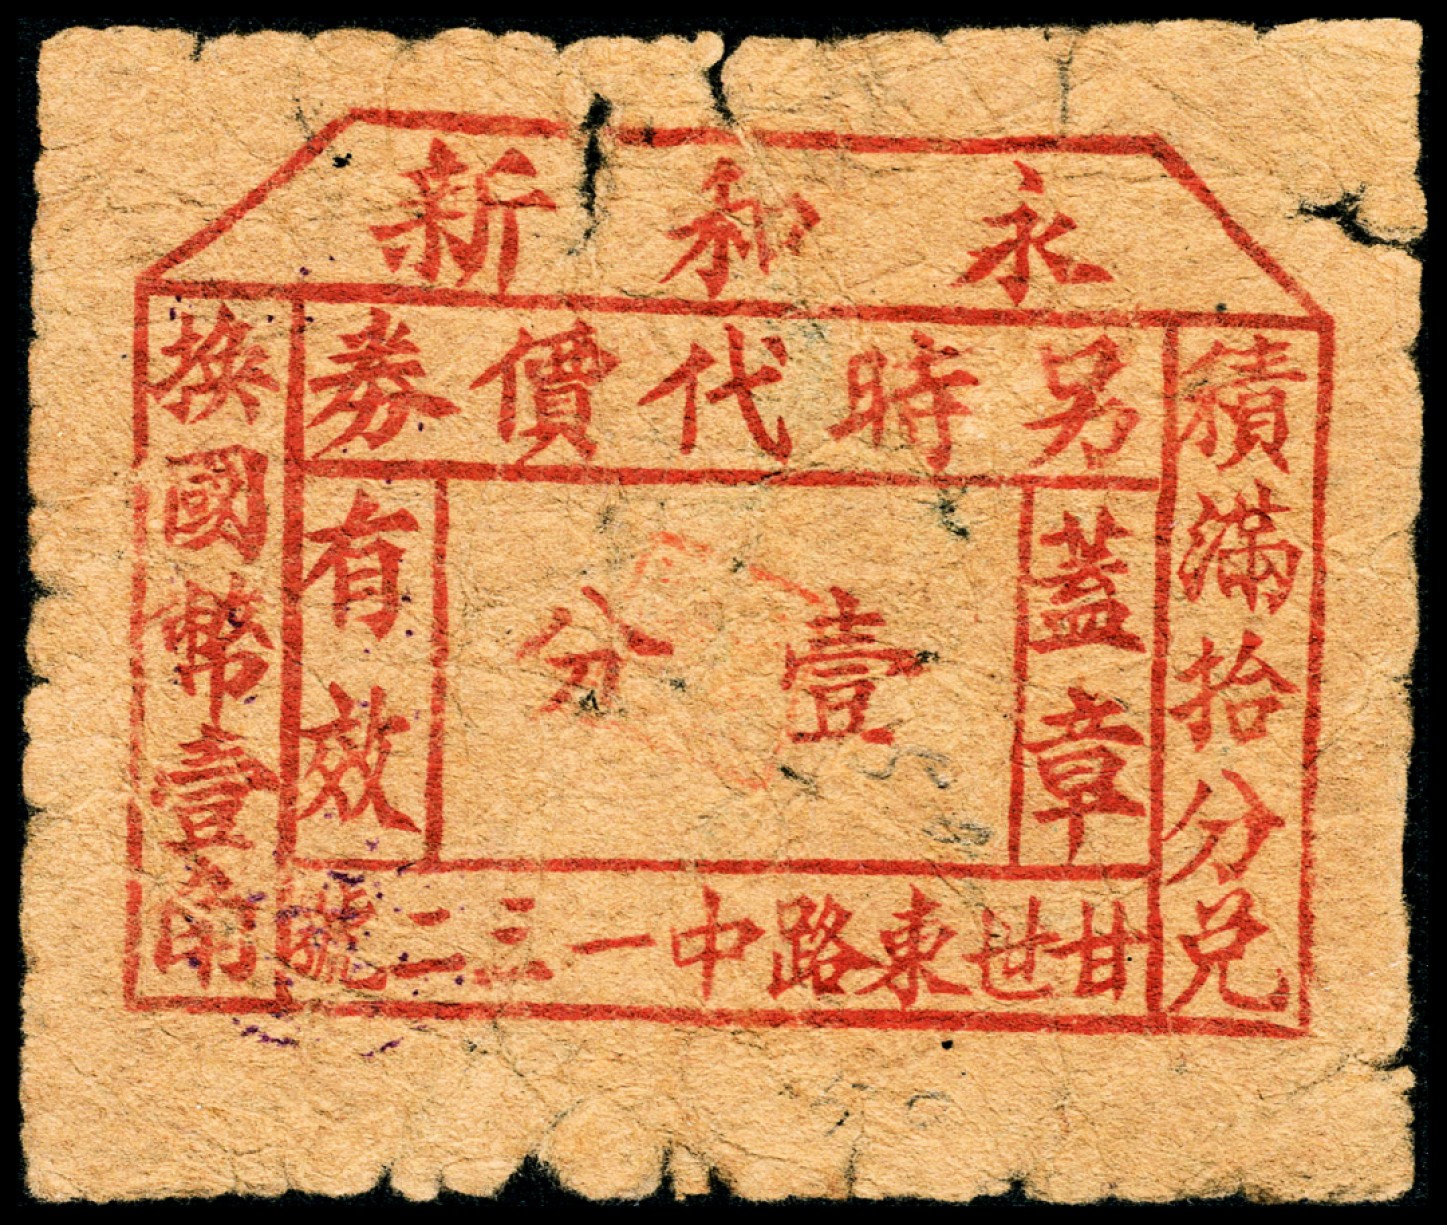 永和新
另時代價券
積滿拾分兑
換國幣壹角
蓋章
有效
壹分
甘世東路中一三二號